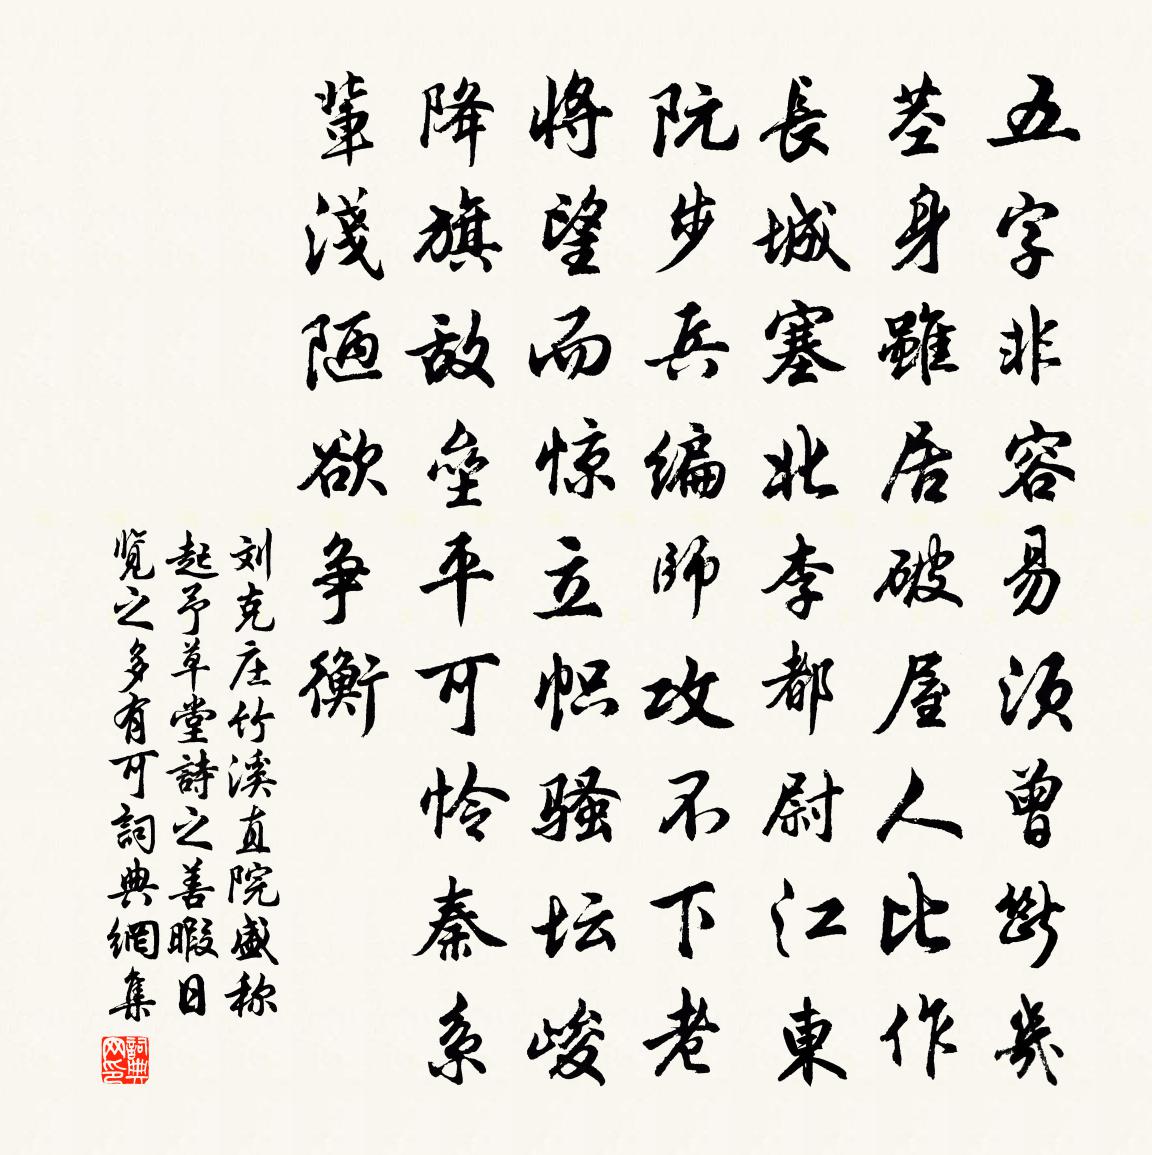 五字非容易須曾斷幾
茎身雖居破屋人比作
長城塞北李都尉江東
阮步兵編師攻不下老
將望而惊立帜骚坛峻
降旗敌垒平可怜秦系
輩淺陋欲争衡
刘克庄竹溪直院盛称
起予草堂詩之善暇日
览之多有可詞典網集
詞典网印